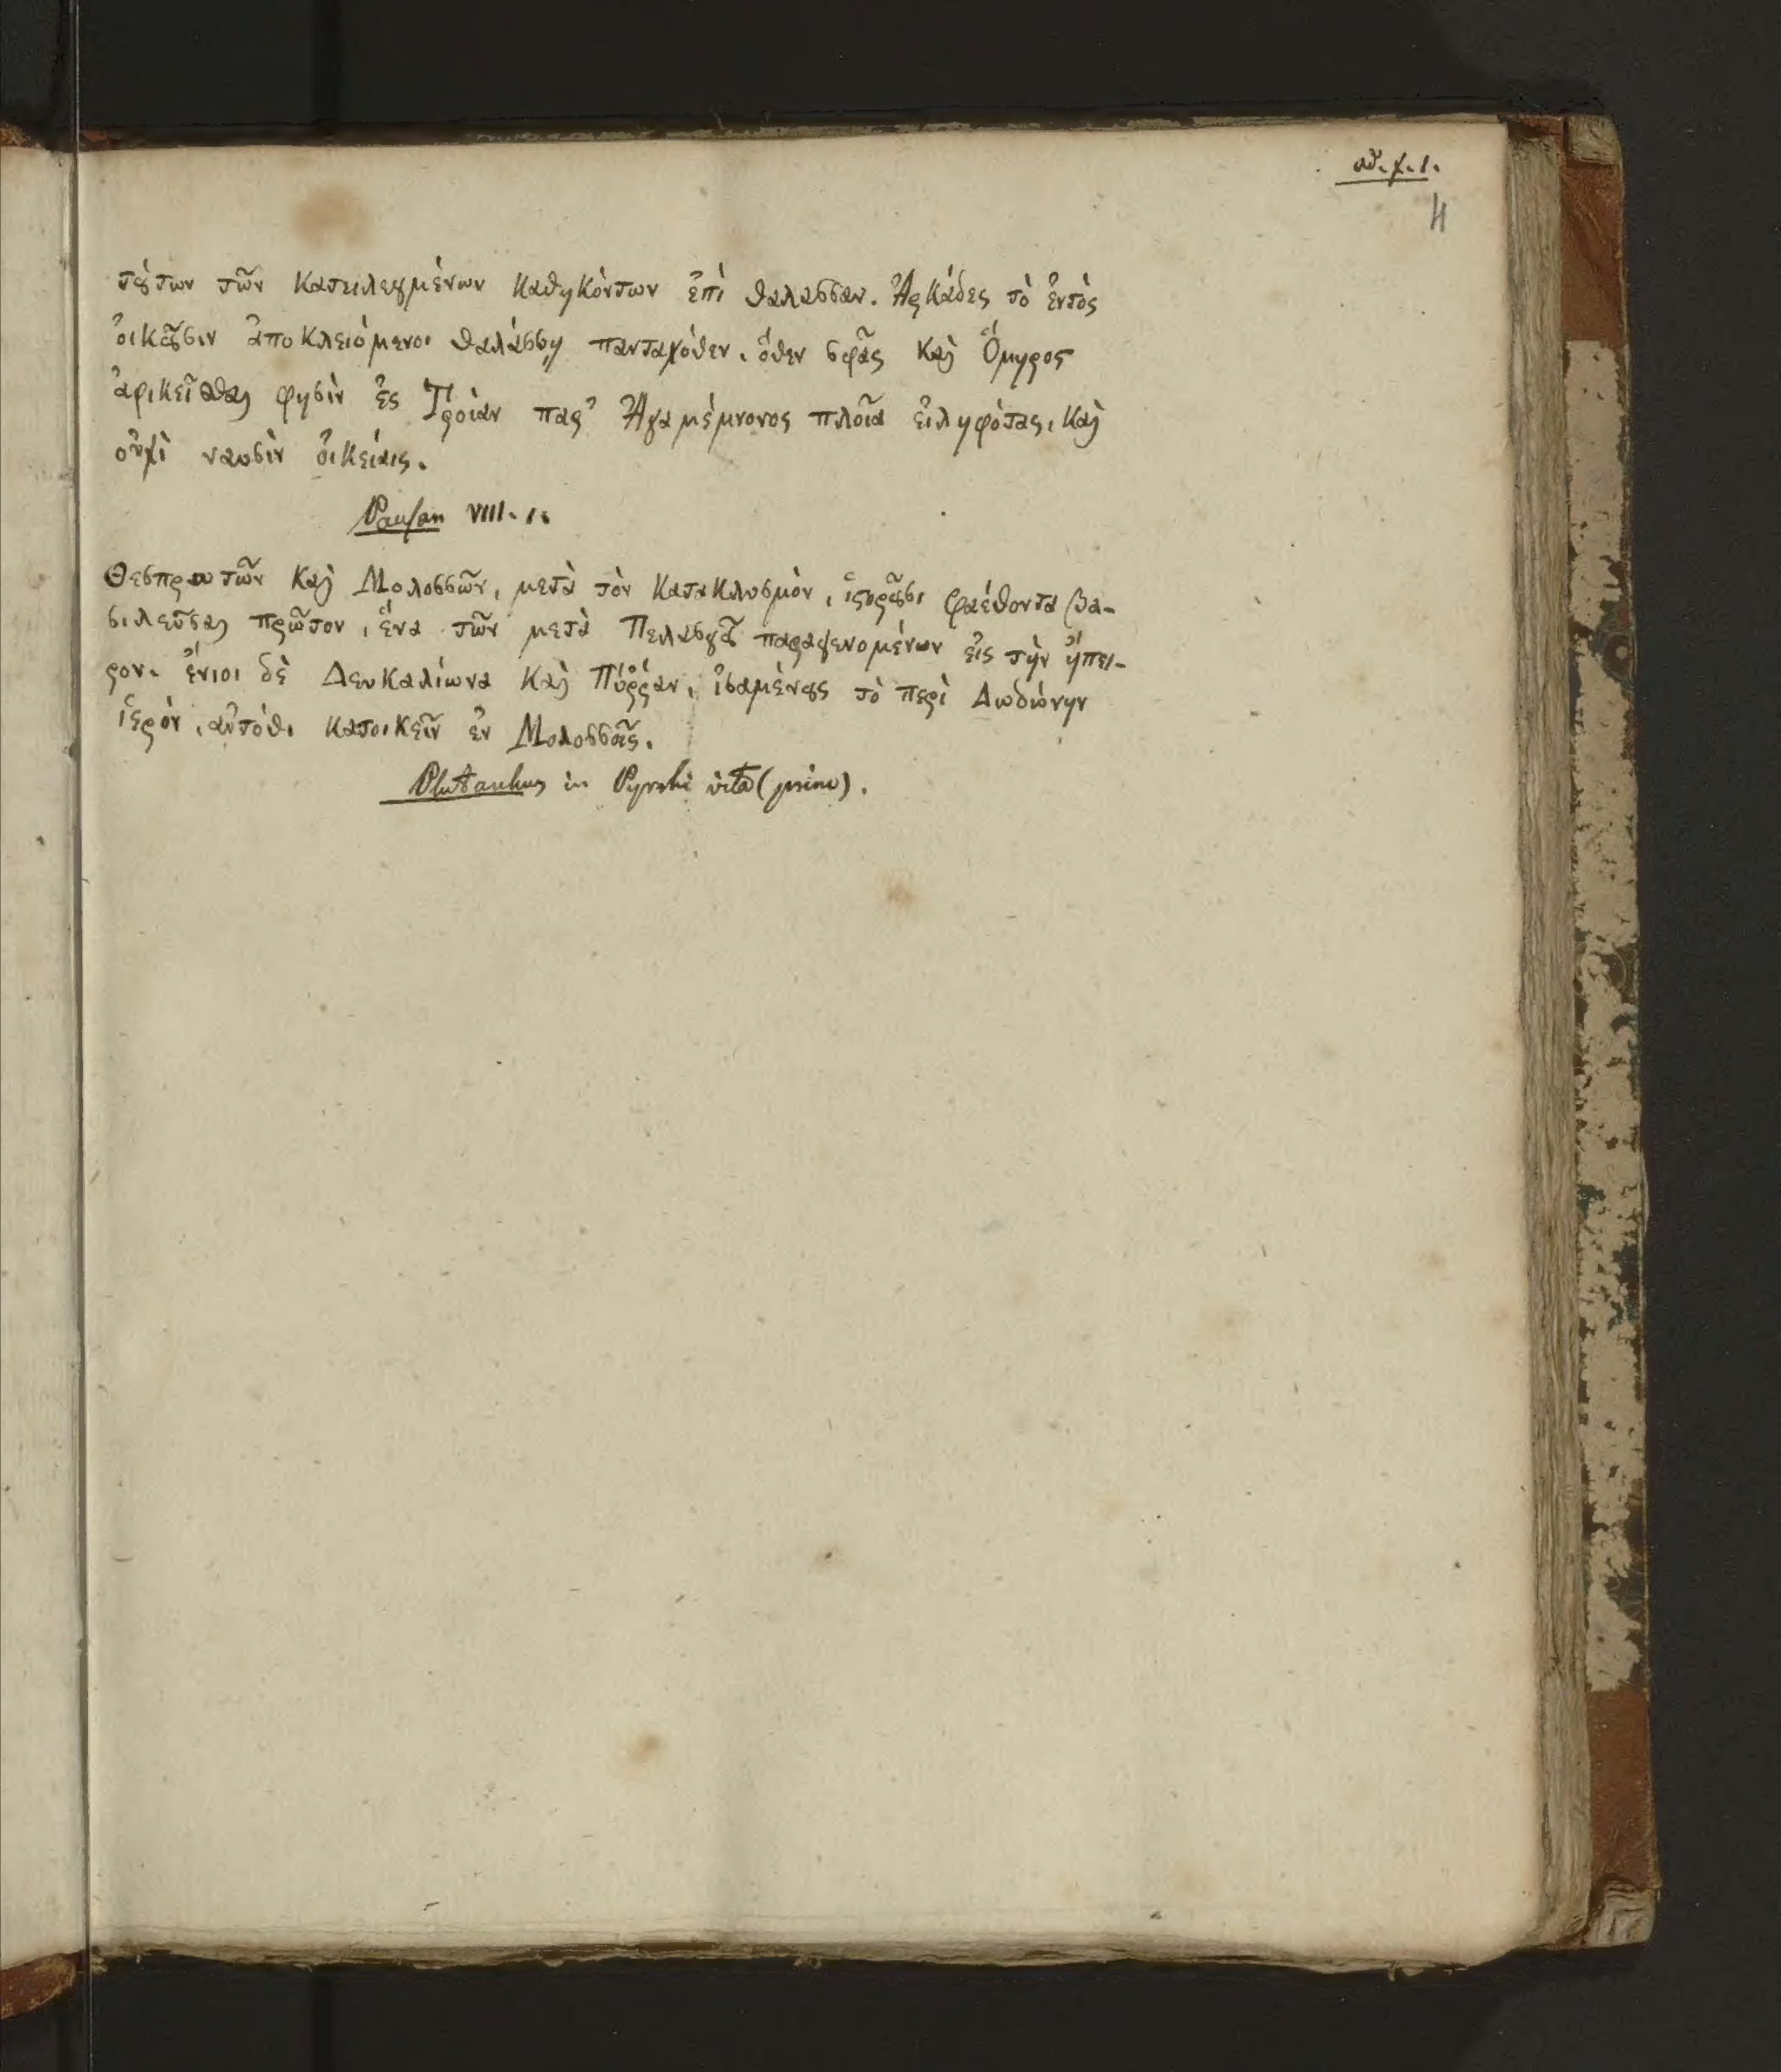 4
τούτων τῶν κατειλεγμένων καθηκόντων ἐπὶ θαλασσαν. Ἀρκάδες τὸ ἐντὸς
οἰκοῦσιν ἀποκλειόμενοι θαλάσσῃ πανταχόθεν. ὅθεν σφᾶς καὶ Ὅμηρος
ἀφικεῖσθαι φησὶν ἐς Τροίαν παρ' Ἀγαμέμνονος πλοῖα εἰληφότας, καὶ
οὐχὶ ναυσὶν οἰκείαις.
Pausan VIII. 1.
Θεσπρωτῶν καὶ Μολοσσῶν, μετὰ τὸν κατακλυσμὸν, ἱστοροῦσι Φαέθοντα βα-
σιλεῦσαι πρῶτον, ἕνα τῶν μετὰ Πελασγοῦ παραγενομένων εἰς τὴν ἤπει-
ρον. ἔνιοι δὲ Δευκαλίωνα καὶ Πύῤῥαν, ἰσαμένους τὸ περὶ Δωδώνην
ἱερὸν, αὐτόθι κατοικεῖν ἐν Μολοσσοῖς.
Plutarchus in Pyrrhi vita (princ).